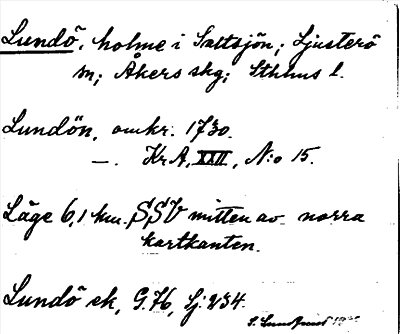 Lundö, holme i Saltsjön; Ljusterö
sn; Åkers skg; Sthlms l.
Lundön, omkr. 1730.
—. Kr.A, XXII, N:o 15.
Läge 6,1 km. SSV mitten av norra
kartkanten.
Lundö ek, G.76, Lj. 234.